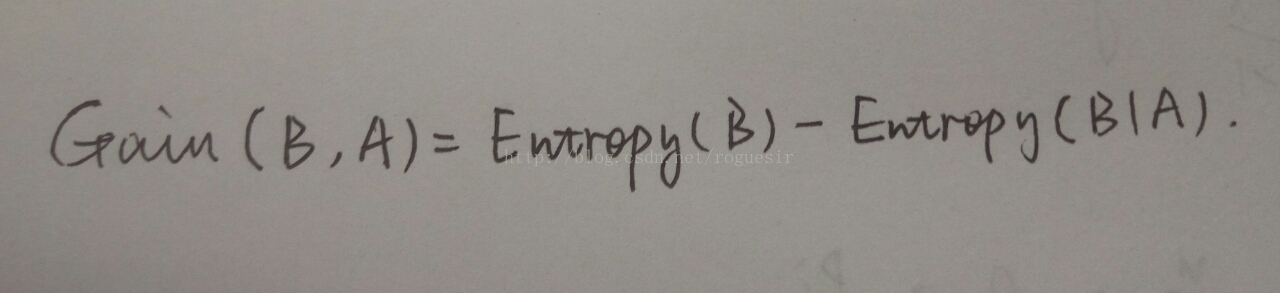 Gain (B, A) = Entropy(B) - Entropy(B|A).
http://blog.csdn.net/roguesir